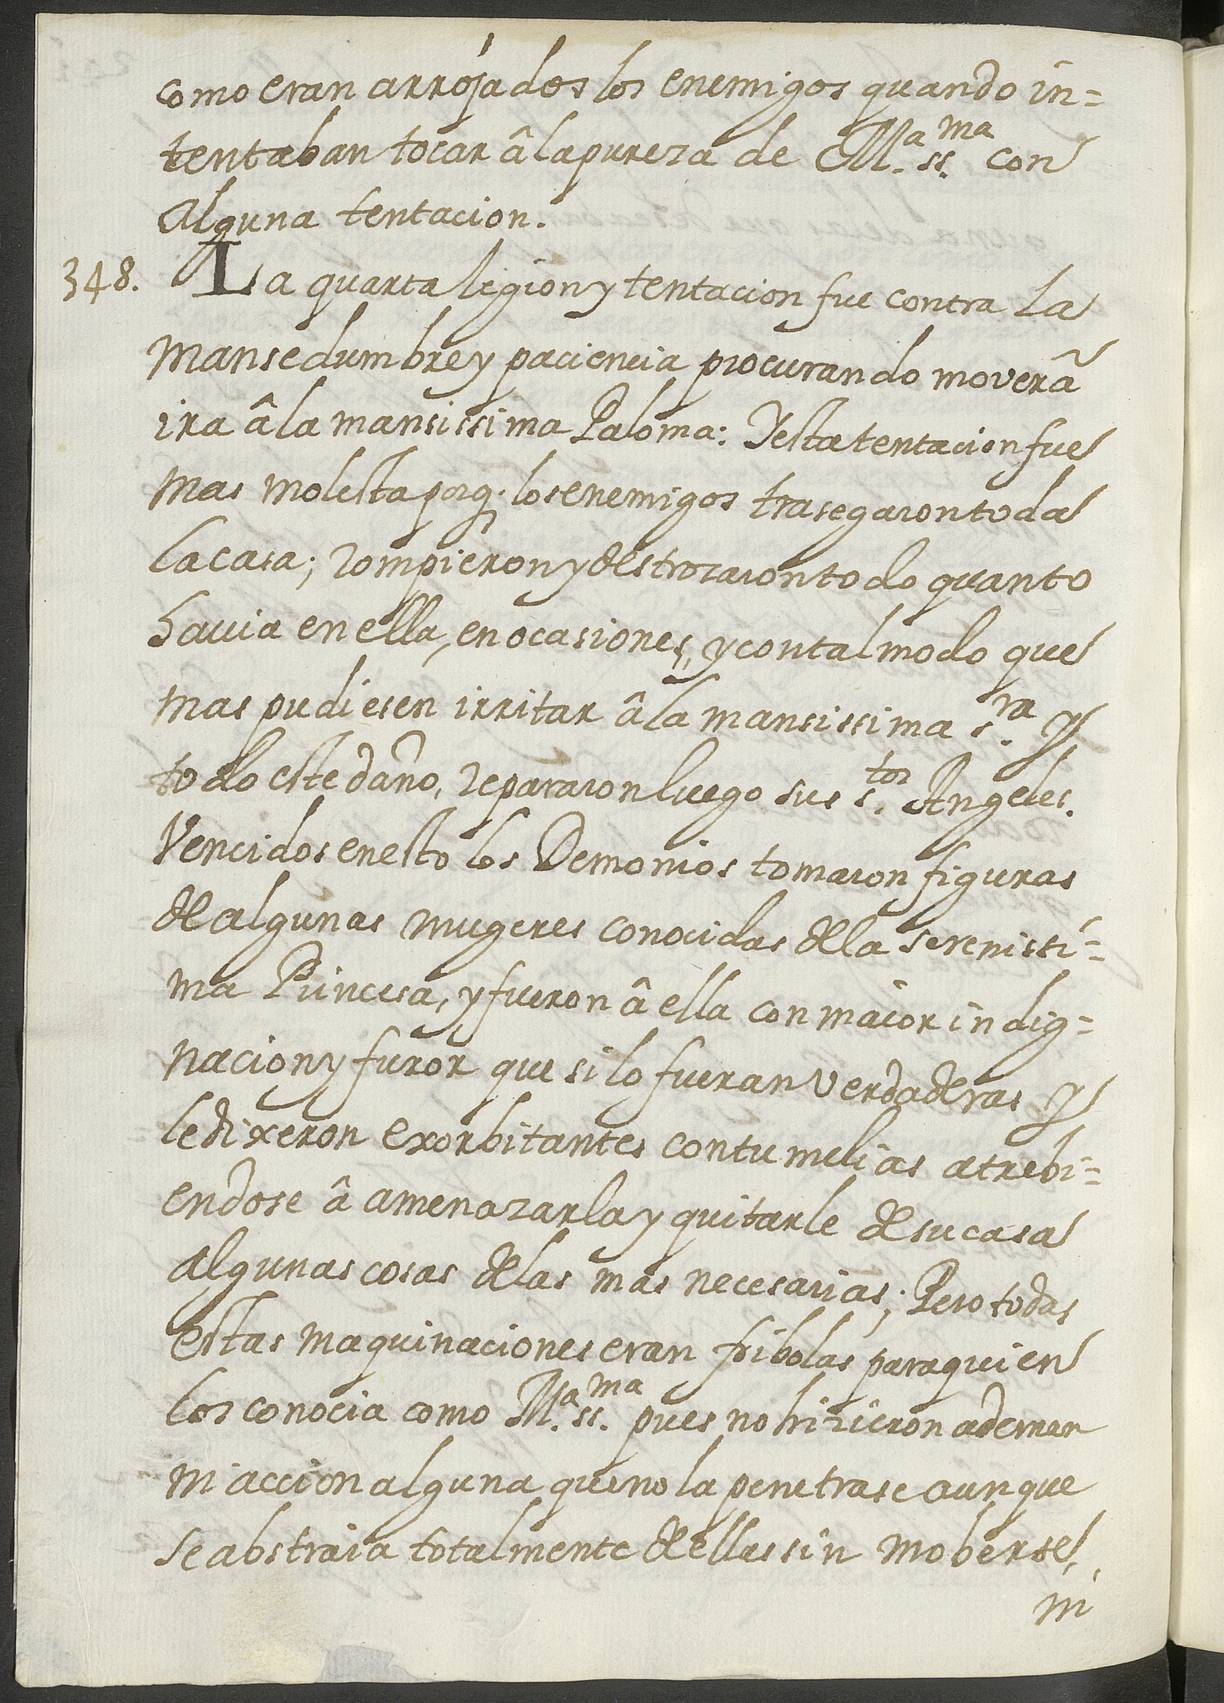 como eran arrojados los enemigos quando in=
tentaban tocar â la pureza de M.ª ss.ma con
Alguna tentacion.
348. La quarta legion y tentacion fue contra la
Mansedumbre y paciencia procurando mover â
ira â la mansissima Paloma: Y esta tentacion fue
mas molesta porq. los enemigos trasegaron toda
la casa; rompieron y destrozaron todo quanto
havia en ella, en ocasiones, y con tal modo que
mas pudiesen irritar â la mansissima s.ra y
todo este daño, repararon luego sus s.tos Angeles.
Vencidos en esto los Demonios tomaron figuras
de algunas mugeres conocidas de la serenissi=
ma Princesa, y fueron â ella con maior indig=
nacion y furor que si lo fueran verdaderas y
le dixeron exorbitantes contumelias atrebi=
endose â amenazarla y quitarle de su casa
algunas cosas de las mas necesarias; Pero todas
estas maquinaciones eran fribolas para quien
los conocia como M.ª ss.ma pues no hizieron ademan
ni accion alguna que no la penetrase aunque
se abstraia totalmente de ellas sin moberse,
ni